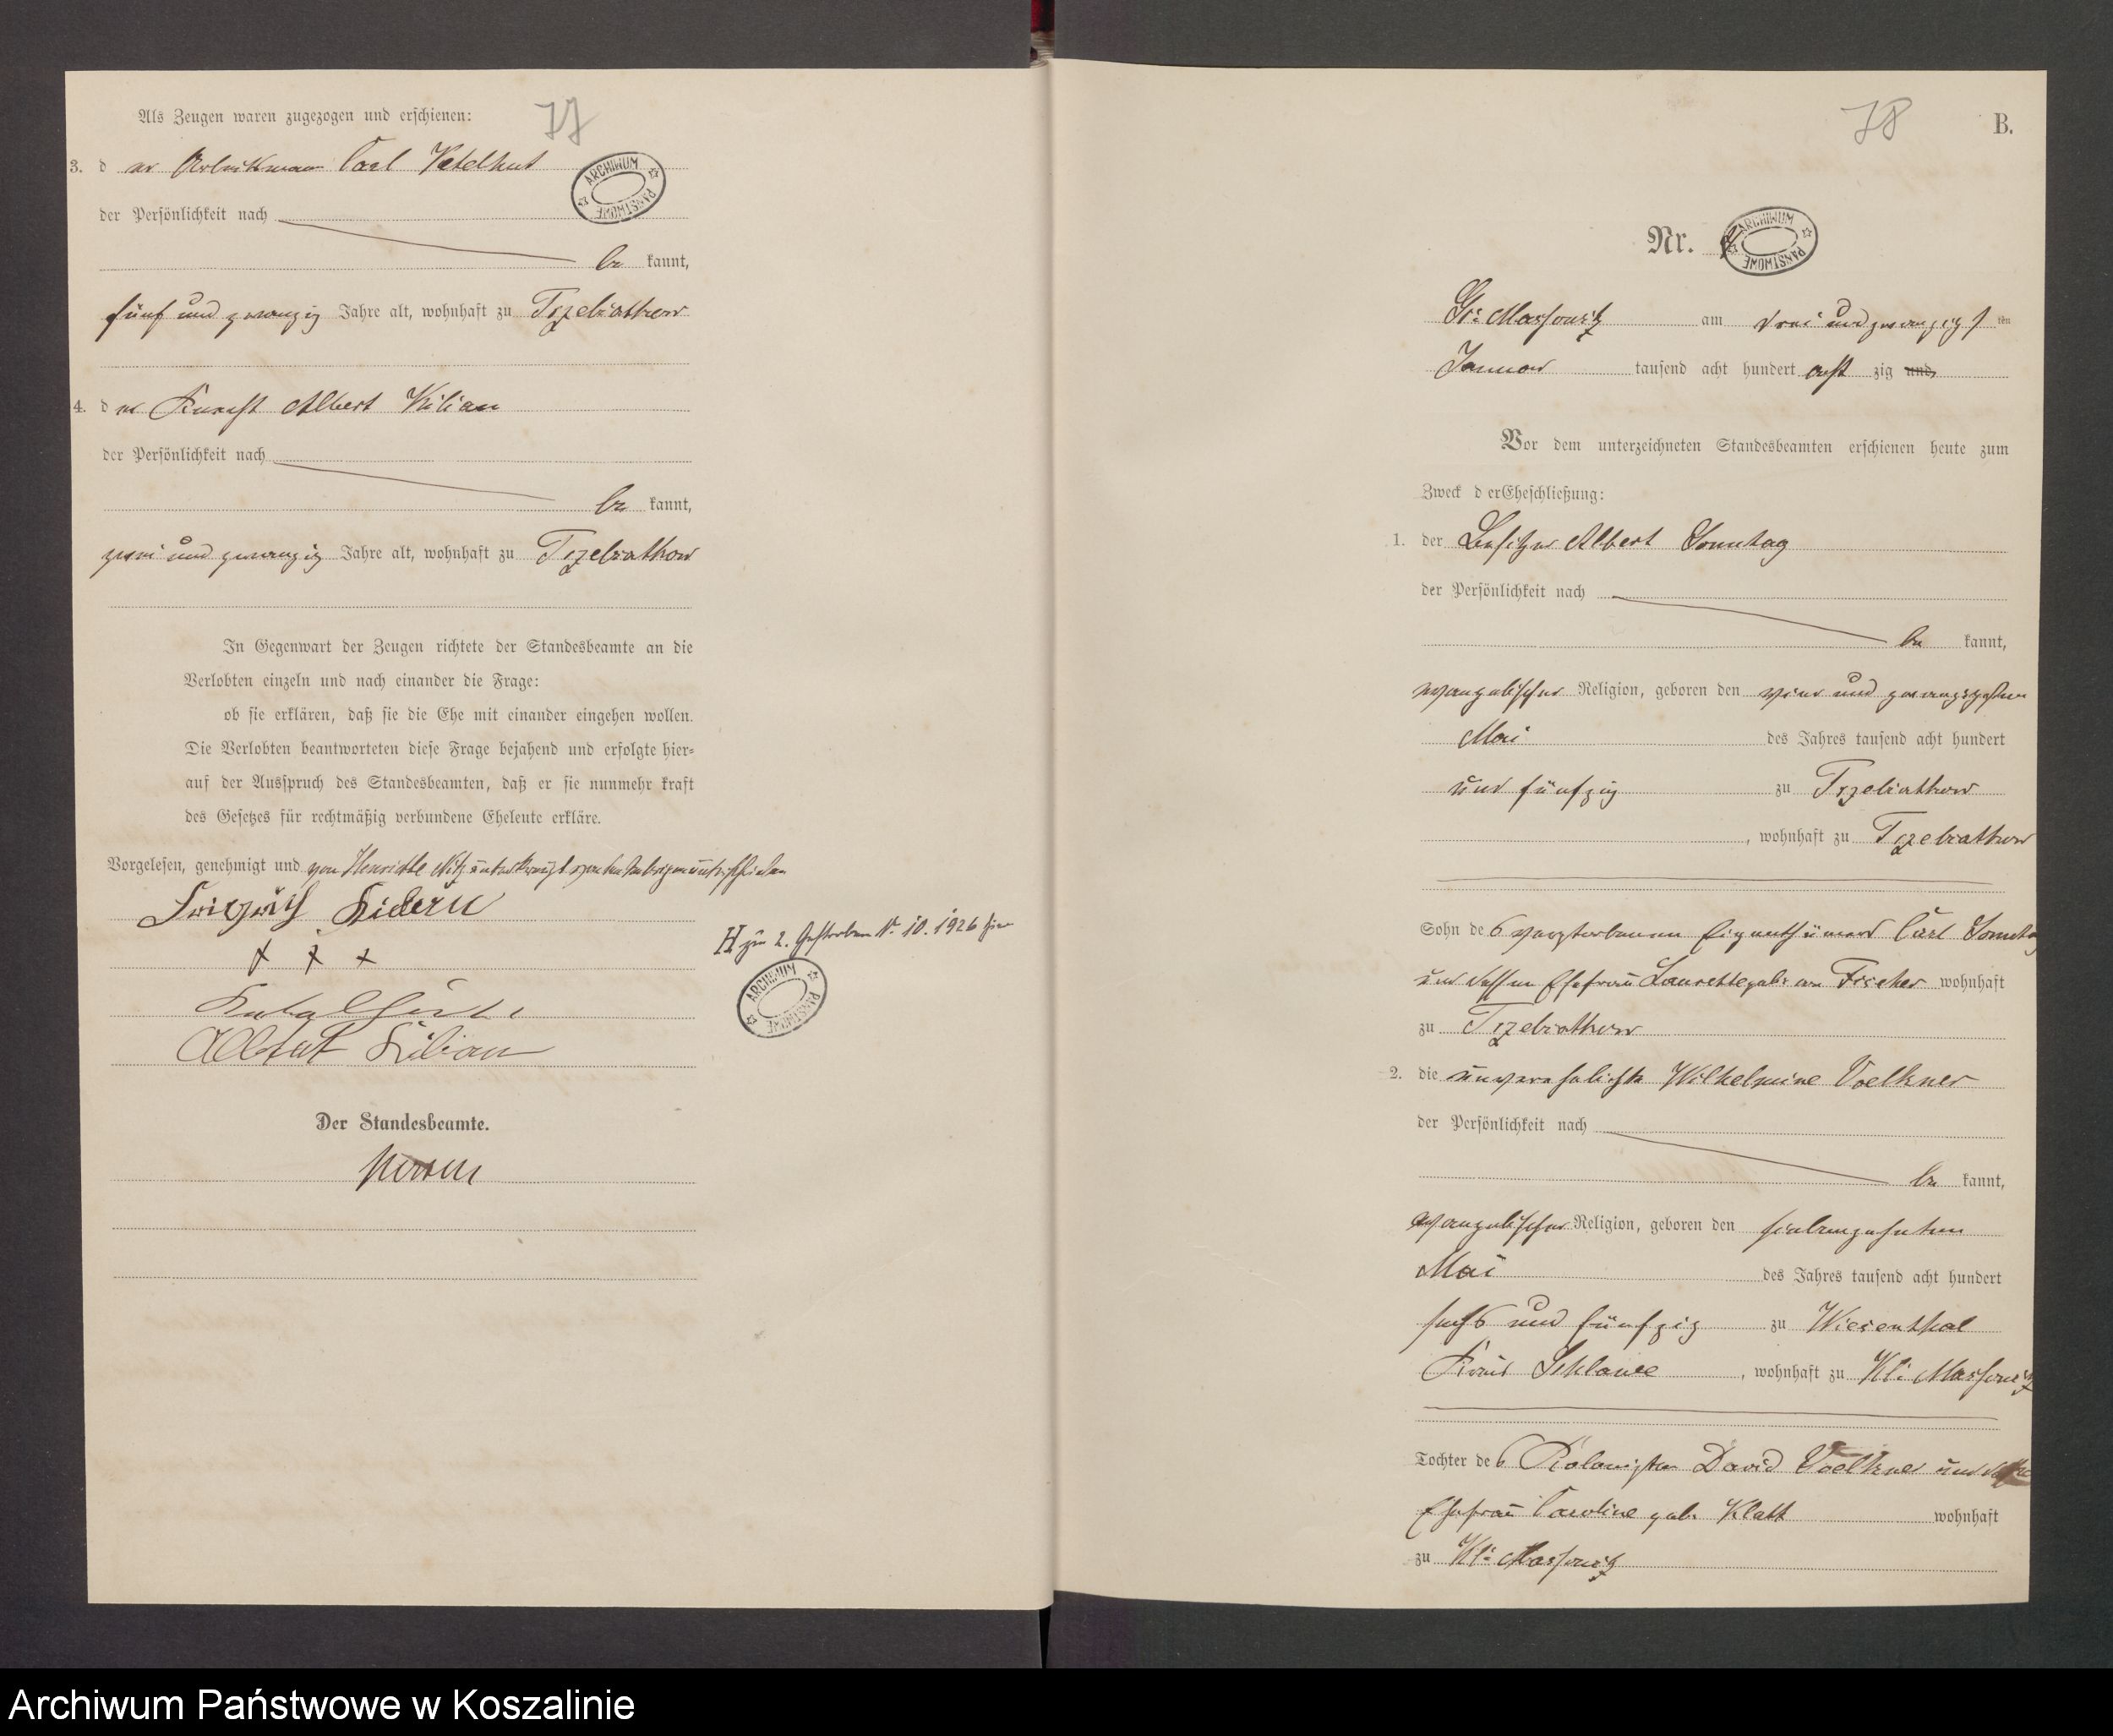 77
Als Zeugen waren zugezogen und erschienen:
3. der Arbeitsmann Carl Ketelhut
der Persönlichkeit nach
be kannt,
fünf und zwanzig Jahre alt, wohnhaft zu Trzebiatkow
4. der Knecht Albert Kilian
der Persönlichkeit nach
be kannt,
zwei und zwanzig Jahre alt, wohnhaft zu Trzebiatkow
In Gegenwart der Zeugen richtete der Standesbeamte an die
Verlobten einzeln und nach einander die Frage:
ob sie erklären, daß sie die Ehe mit einander eingehen wollen.
Die Verlobten beantworteten diese Frage bejahend und erfolgte hier=
auf der Ausspruch des Standesbeamten, daß er sie nunmehr kraft
des Gesetzes für rechtmäßig verbundene Eheleute erkläre.
Vorgelesen, genehmigt und von Henriette unterkreuzt von den Uebrigen unterschrieben
+ + +
Albert Kilian
H zu 2. Gestorben Nr. 10. 1926 hier
Der Standesbeamte.
ARCHIWUM PAŃSTWOWE
ARCHIWUM PAŃSTWOWE
78
B.
Nr.
ARCHIWUM PAŃSTWOWE
Gr: Massowitz am drei und zwanzigsten
Januar tausend acht hundert acht zig und
Vor dem unterzeichneten Standesbeamten erschienen heute zum
Zweck der Eheschließung:
1. der Besitzer Albert Sonntag
der Persönlichkeit nach
be kannt,
evangelischer Religion, geboren den vier und zwanzigsten
Mai des Jahres tausend acht hundert
und fünfzig zu Trzebiatkow
, wohnhaft zu Trzebiatkow
Sohn des verstorbenen Eigenthümers Carl Sonntag
und dessen Ehefrau Laurette geb: Fischer wohnhaft
zu Trzebiatkow
2. die unverehelichte Wilhelmine Voelkner
der Persönlichkeit nach
be kannt,
evangelischer Religion, geboren den siebenzehnten
Mai des Jahres tausend acht hundert
sechs und fünfzig zu Wiesenthal
Kreis Schlawe, wohnhaft zu Kl: Massowitz
Tochter des Kolonisten David Voelkner und dessen
Ehefrau Caroline geb: Klatt wohnhaft
zu Kl: Massowitz
Archiwum Państwowe w Koszalinie